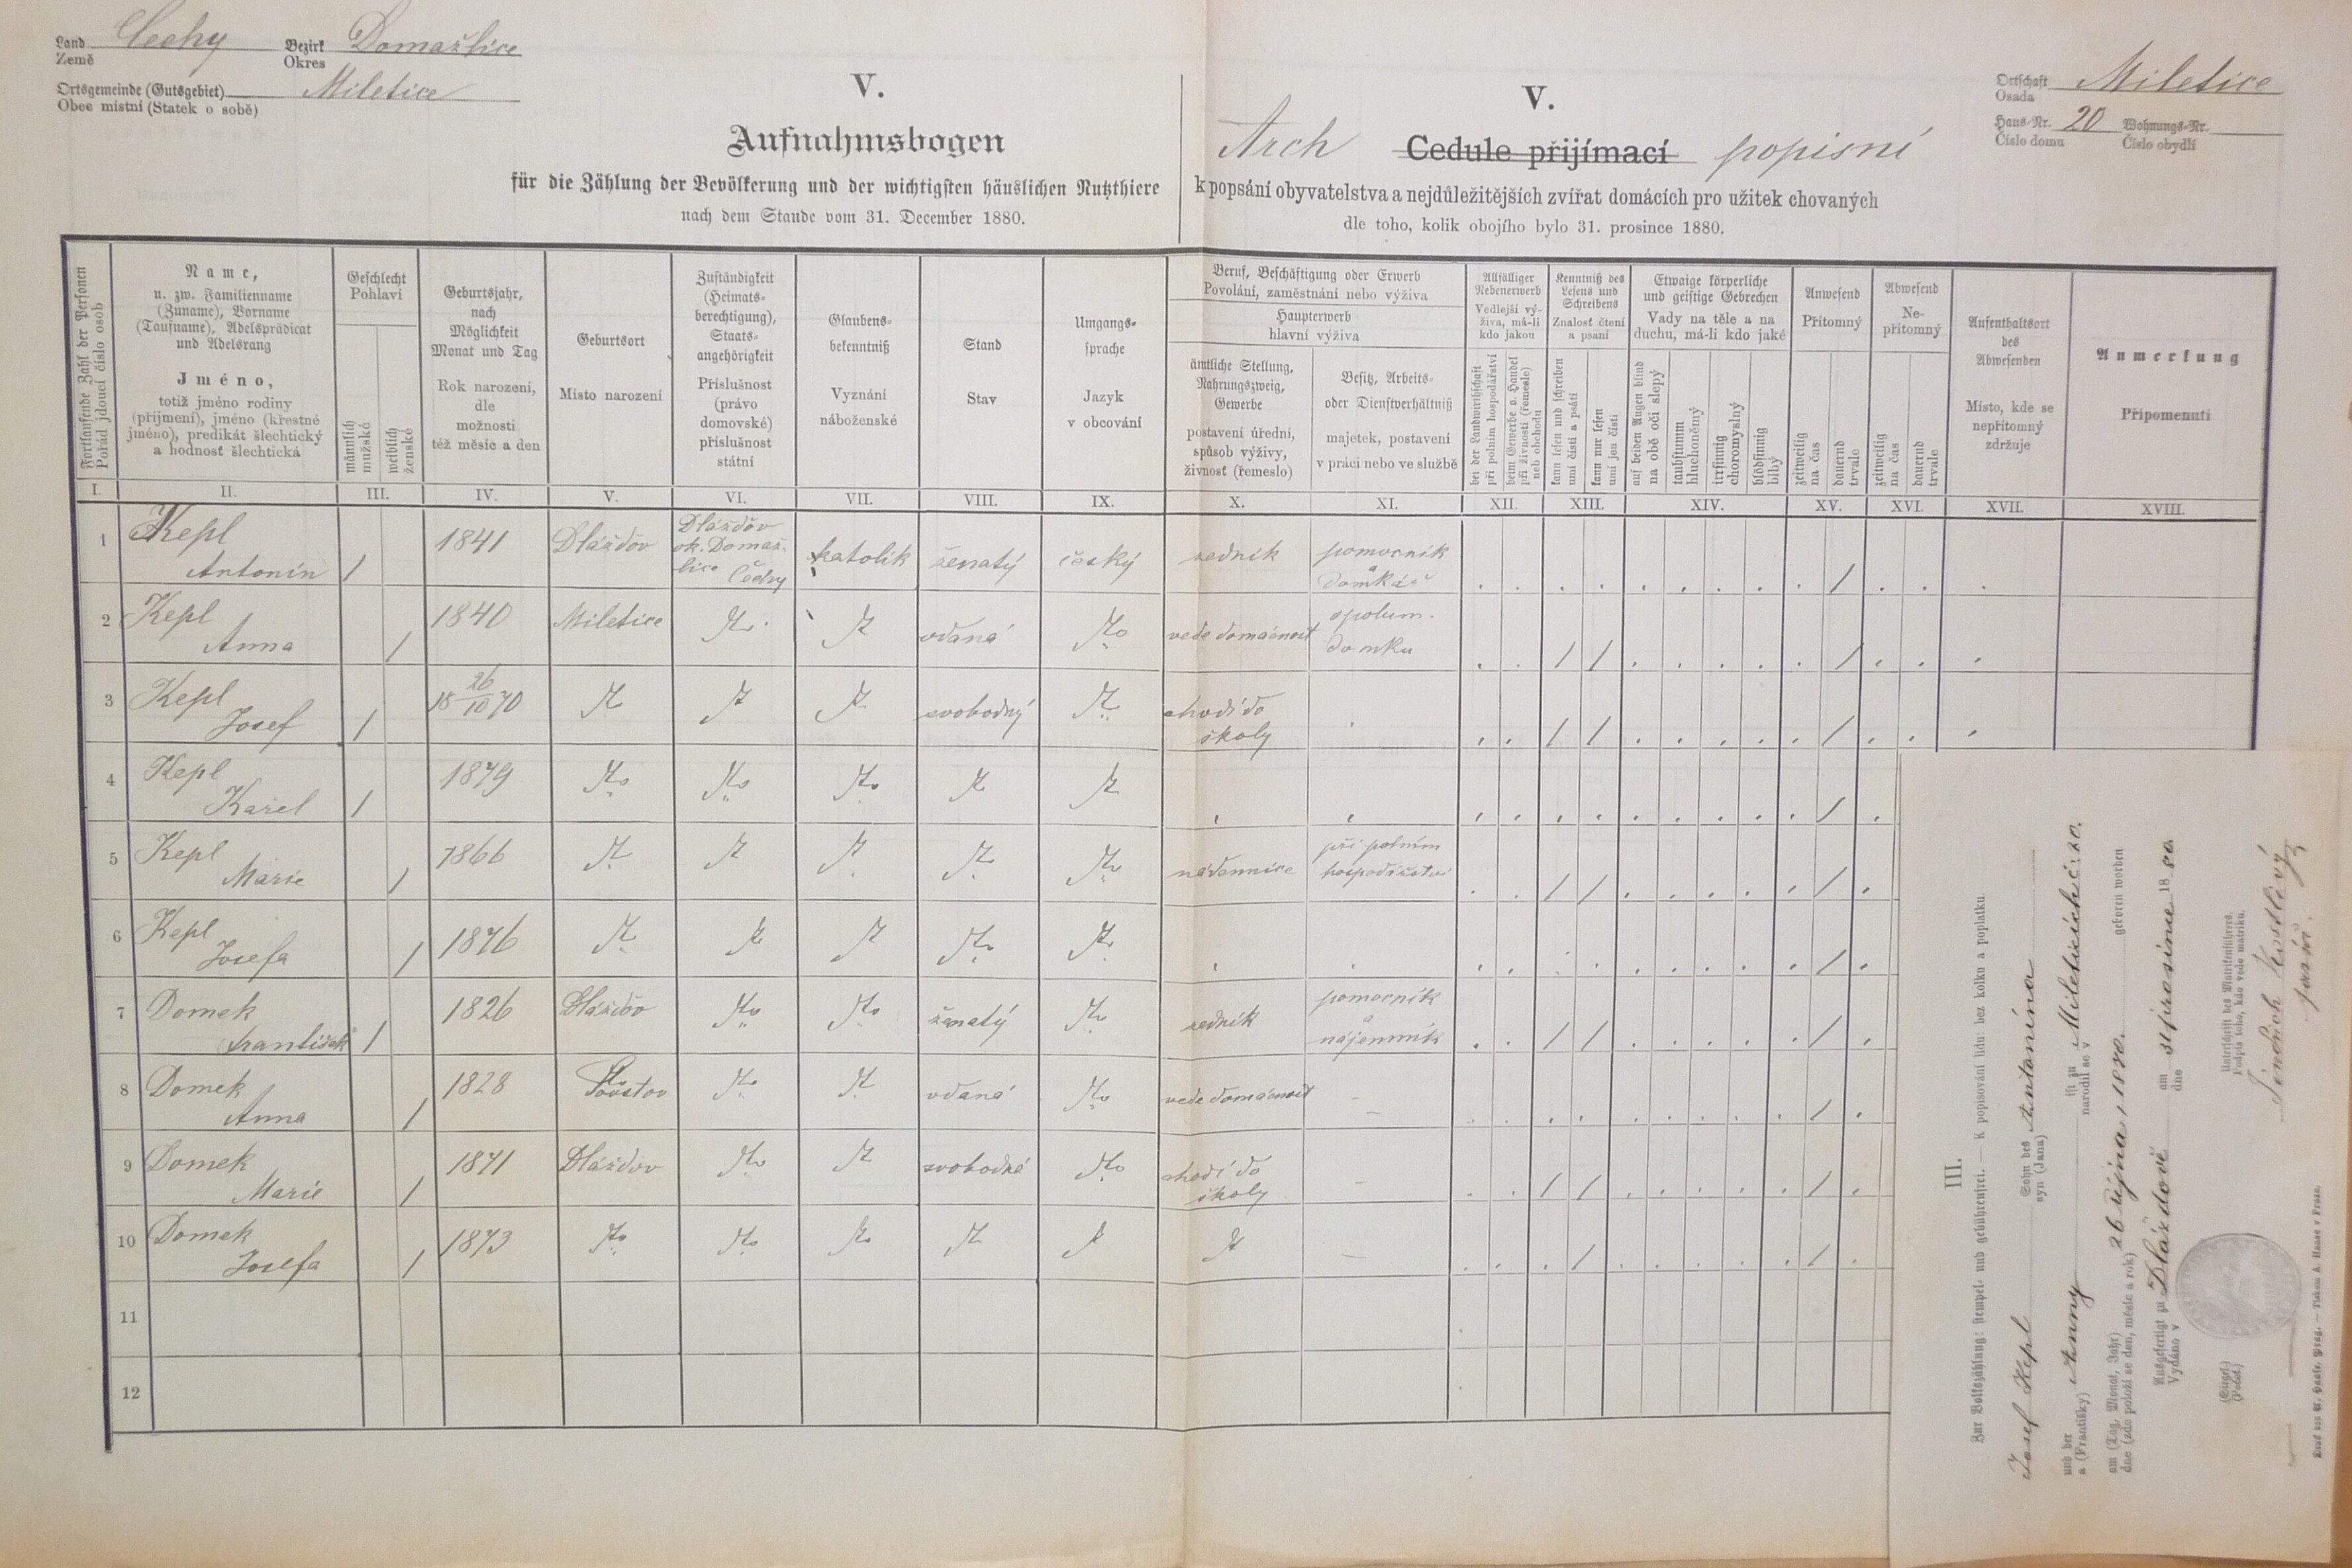 Land Čechy Bezirk Domažlice
Země Okres
Ortsgemeinde (Gutsgebiet) Miletice
Obec místní (Statek o sobě)
V.
Aufnahmsbogen
für die Zählung der Bevölkerung und der wichtigsten häuslichen Nutzthiere
nach dem Stande vom 31. December 1880.
V.
Arch Cedule přijímací popisní
k popsání obyvatelstva a nejdůležitějších zvířat domácích pro užitek chovaných
dle toho, kolik obojího bylo 31. prosince 1880.
Ortschaft Miletice
Osada
Haus-Nr. 20 Wohnungs-Nr.
Číslo domu Číslo obydlí
Fortlaufende Zahl der Personen
Pořád jdoucí číslo osob
Name,
u. zw. Familienname
(Zuname), Vorname
(Taufname), Adelsprädicat
und Adelsrang
Jméno,
totiž jméno rodiny
(příjmení), jméno (křestné
jméno), predikát šlechtický
a hodnosť šlechtická
Geschlecht
Pohlaví
männlich
mužské
weiblich
ženské
Geburtsjahr,
nach
Möglichkeit
Monat und Tag
Rok narození,
dle
možnosti
též měsíc a den
Geburtsort
Místo narození
Zuständigkeit
(Heimats-
berechtigung),
Staats-
angehörigkeit
Příslušnost
(právo
domovské)
příslušnost
státní
Glaubens-
bekenntniß
Vyznání
náboženské
Stand
Stav
Umgangs-
sprache
Jazyk
v obcování
Beruf, Beschäftigung oder Erwerb
Povolání, zaměstnání nebo výživa
Haupterwerb
hlavní výživa
ämtliche Stellung,
Nahrungszweig,
Gewerbe
postavení úřední,
způsob výživy,
živnosť (řemeslo)
Besitz, Arbeits-
oder Dienstverhältniß
majetek, postavení
v práci nebo ve službě
Allfälliger
Nebenerwerb
Vedlejší vý-
živa, má-li
kdo jakou
bei der Landwirthschaft
při polním hospodářství
beim Gewerbe o. Handel
při živnosti (řemesle)
neb obchodu
Kenntniß des
Lesens und
Schreibens
Znalosť čtení
a psaní
kann lesen und schreiben
umí čísti a psáti
kann nur lesen
umí jen čísti
Etwaige körperliche
und geistige Gebrechen
Vady na těle a na
duchu, má-li kdo jaké
auf beiden Augen blind
na obě oči slepý
taubstumm
hluchoněmý
irrsinnig
choromyslný
blödsinnig
blbý
Anwesend
Přítomný
zeitweilig
na čas
dauernd
trvale
Abwesend
Ne-
přítomný
zeitweilig
na čas
dauernd
trvale
Aufenthaltsort
des
Abwesenden
Místo, kde se
nepřítomný
zdržuje
Anmerkung
Připomenutí
I. II. III. IV. V. VI. VII. VIII. IX. X. XI. XII. XIII. XIV. XV. XVI. XVII. XVIII.
1 Kepl Antonín / 1841 Dlažďov Dlažďov ok. Domažlice Čechy katolík ženatý český zedník pomocník a domkář
2 Kepl Anna / 1840 Miletice vdaná vede domácnost spolum. domku
3 Kepl Josef / 18 26/10 70 svobodný chodí do školy
4 Kepl Karel / 1879
5 Kepl Marie / 1866 nádennice při polním hospodářství
6 Kepl Josefa / 1876
7 Domek František / 1826 Dlažďov ženatý zedník pomocník a nájemník
8 Domek Anna / 1828 vdaná vede domácnost
9 Domek Marie / 1871 Dlažďov svobodná chodí do školy
10 Domek Josefa / 1873
11
12
III.
Zur Volkszählung: stempel- und gebührenfrei. — K popisování lidu: bez kolku a poplatku.
Josef Kepl Sohn des Antonína
syn (Jana)
und der Anny ist zu Mileticích č: 20.
a (Františky) narodil se v
am (Tag, Monat, Jahr) 26 října 1870. geboren worden
dne (zde položí se den, měsíc a rok)
Ausgefertigt zu Dlažďově am 31 prosince 1880.
Vydáno v dne
(Siegel.)
(Pečeť.)
Unterschrift des Matrikenführers.
Podpis toho, kdo vede matriku.
Jindřich Kostlivý
farář.
Druck von A. Haase, Prag. — Tiskem A. Haase v Praze.